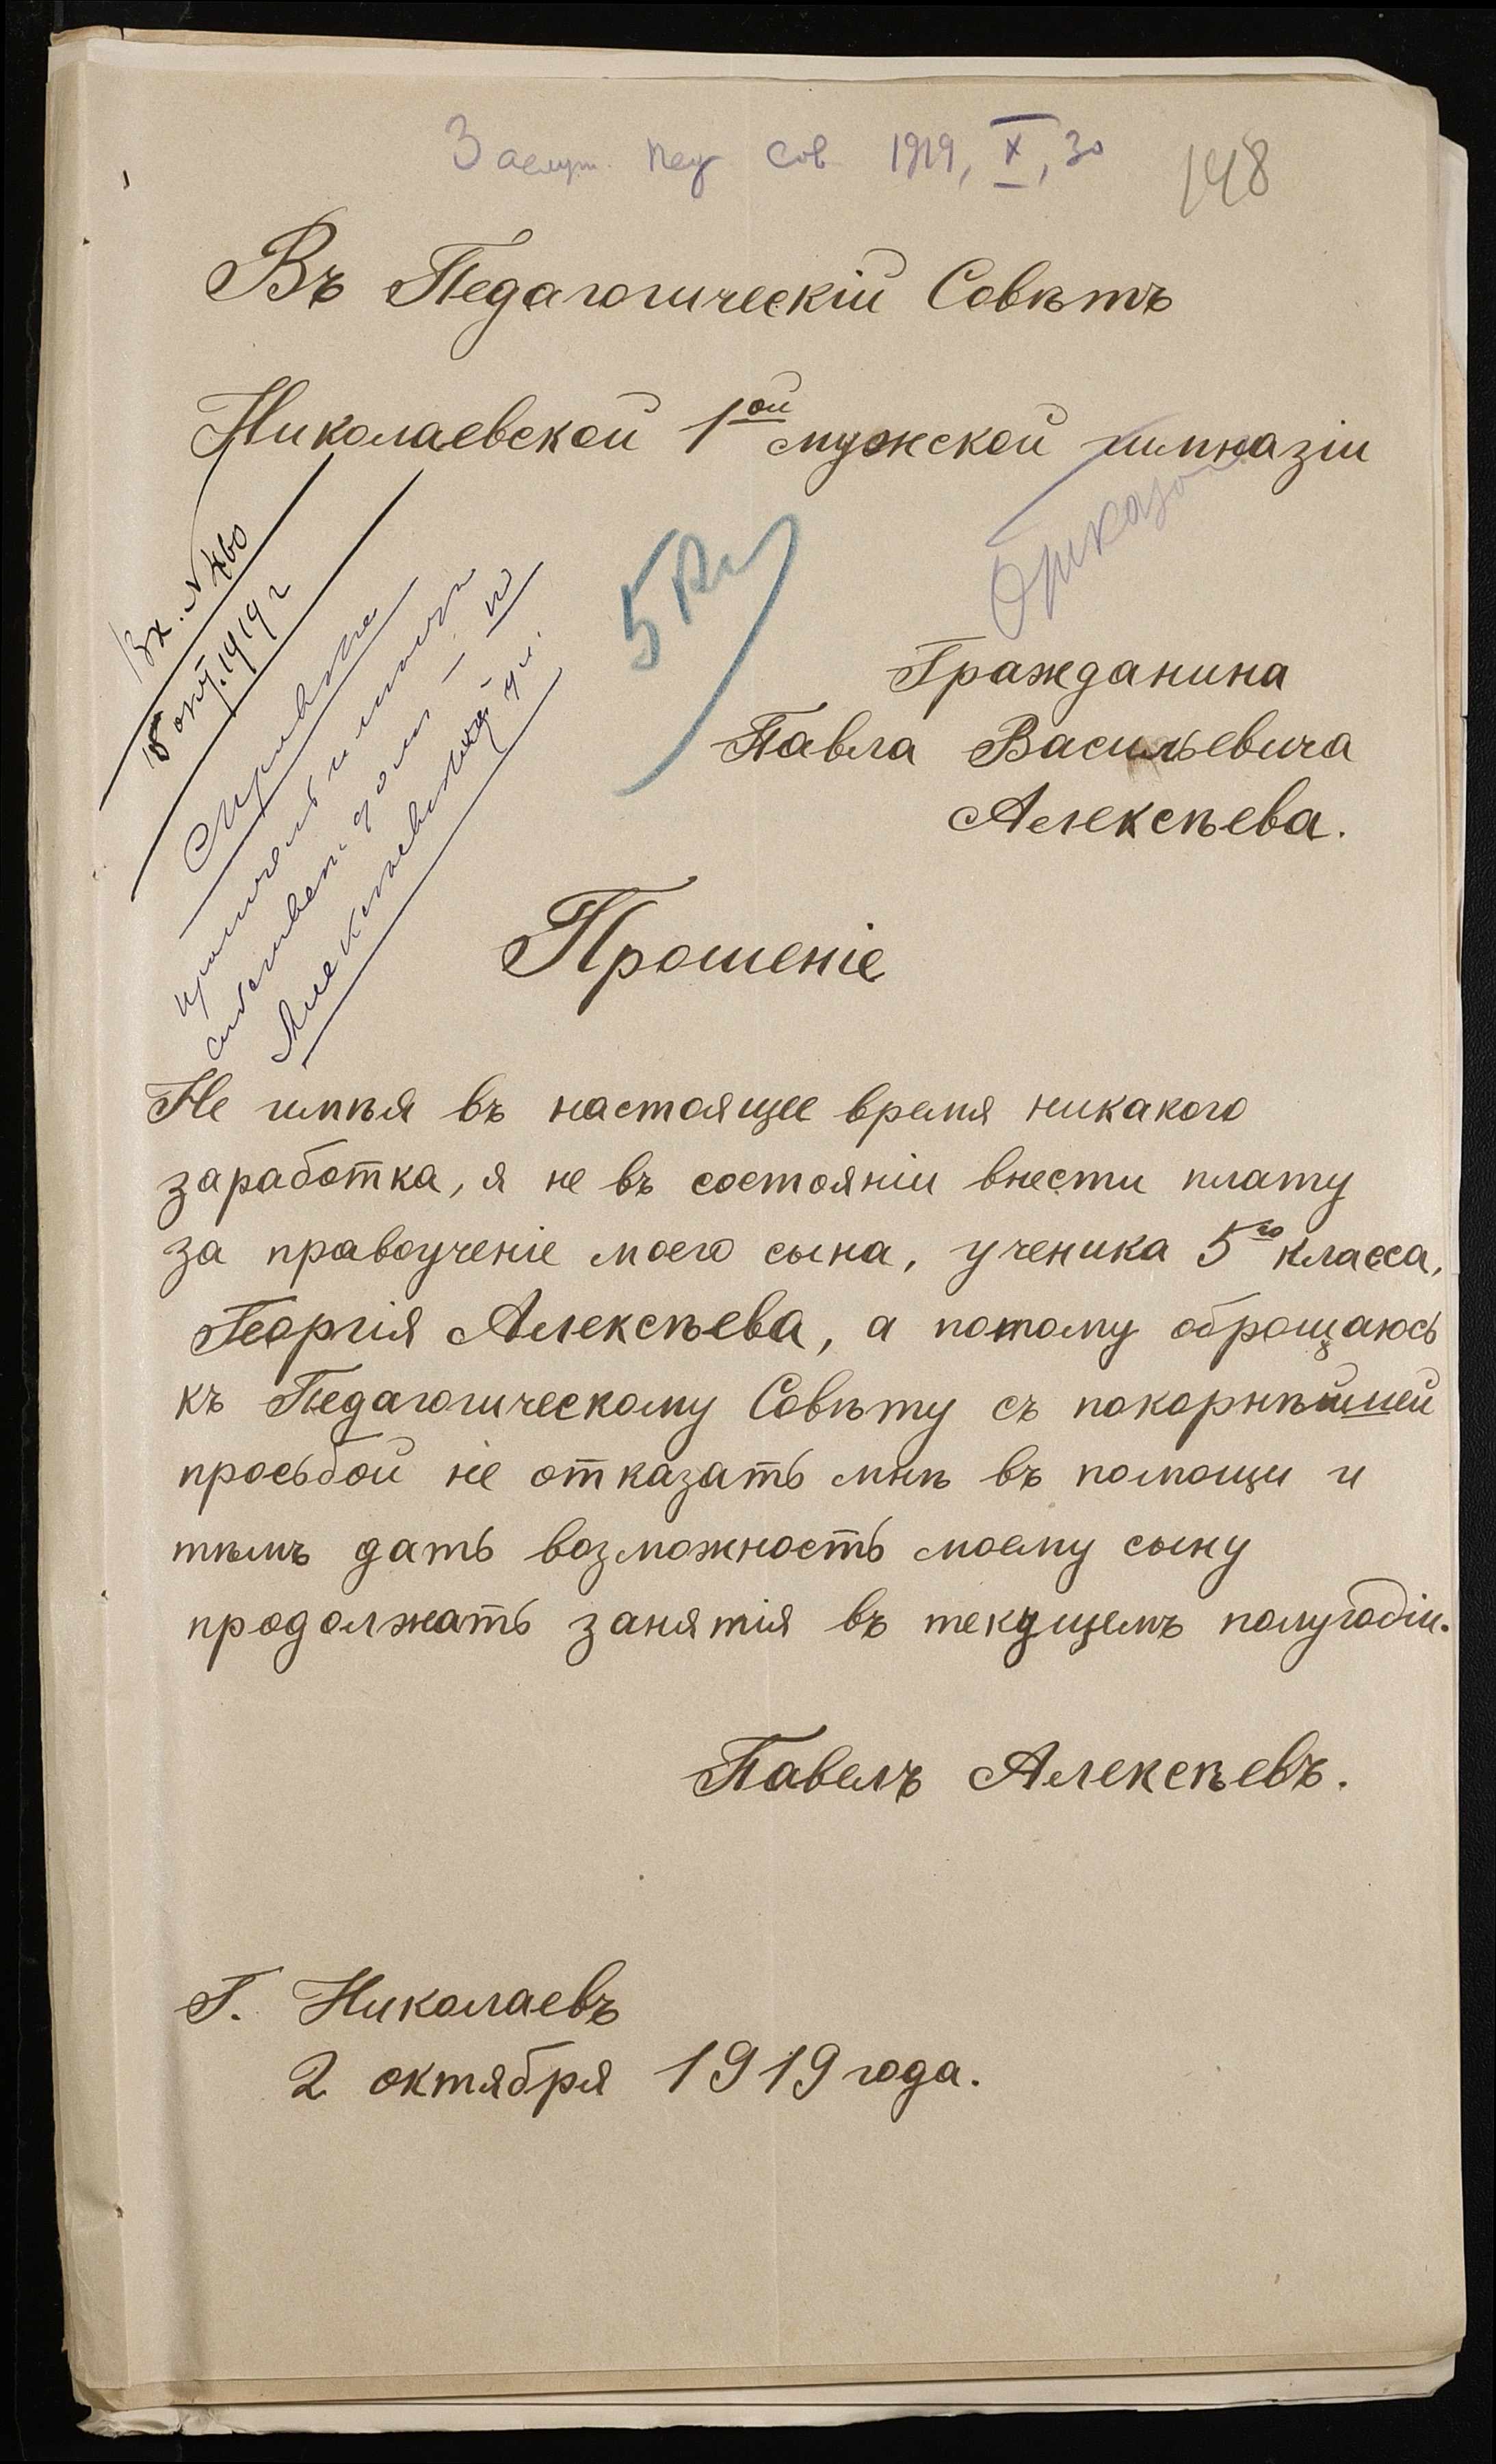 Заслуш. пед сов 1919, X, 30
148
Въ Педагогическій Совѣтъ
Николаевской 1ой мужской гимназіи
Вх. N 460
15 окт. 1919 г
Справка
собствен. домъ
Алексѣевск. ул.
Отказать
Гражданина
Павла Васильевича
Алексѣева.
Прошеніе
Не имѣя въ настоящее время никакого
заработка, я не въ состояніи внести плату
за правоученіе моего сына, ученика 5го класса,
Георгія Алексѣева, а потому обращаюсь
къ Педагогическому Совѣту съ покорнѣйшей
просьбой не отказать мнѣ въ помощи и
тѣмъ дать возможность моему сыну
продолжать занятія въ текущемъ полугодіи.
Павелъ Алексѣевъ.
Г. Николаевъ
2 октября 1919 года.